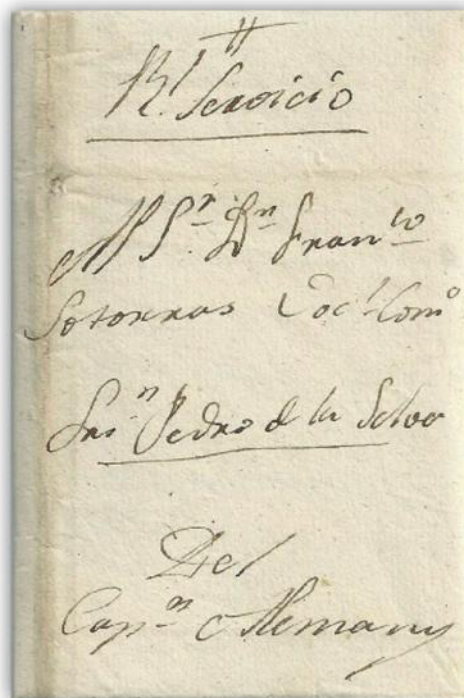 Rl. Servicio
Al Sr. Dn. Franco
Sotorras Vocl. Como
Sn. Pedro d la Selva
Del
Capn. Alemany